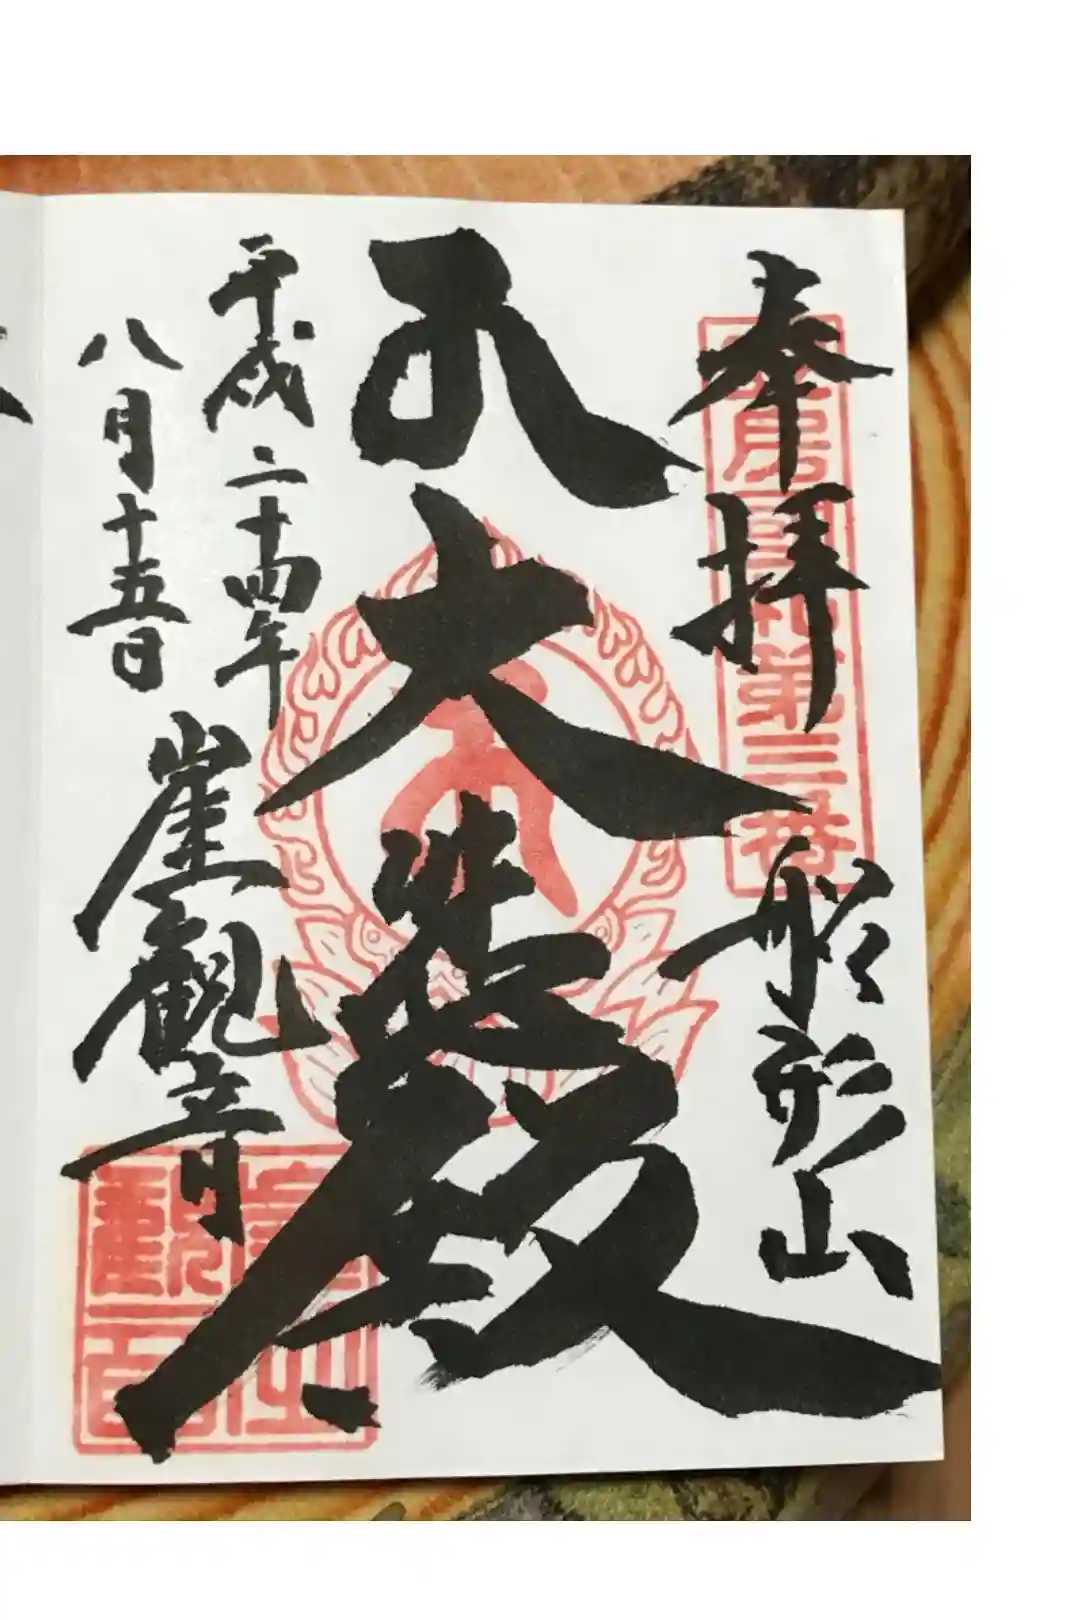 奉拝 船形山
第三番
大悲殿
平成二十四年
八月十五日
崖観音